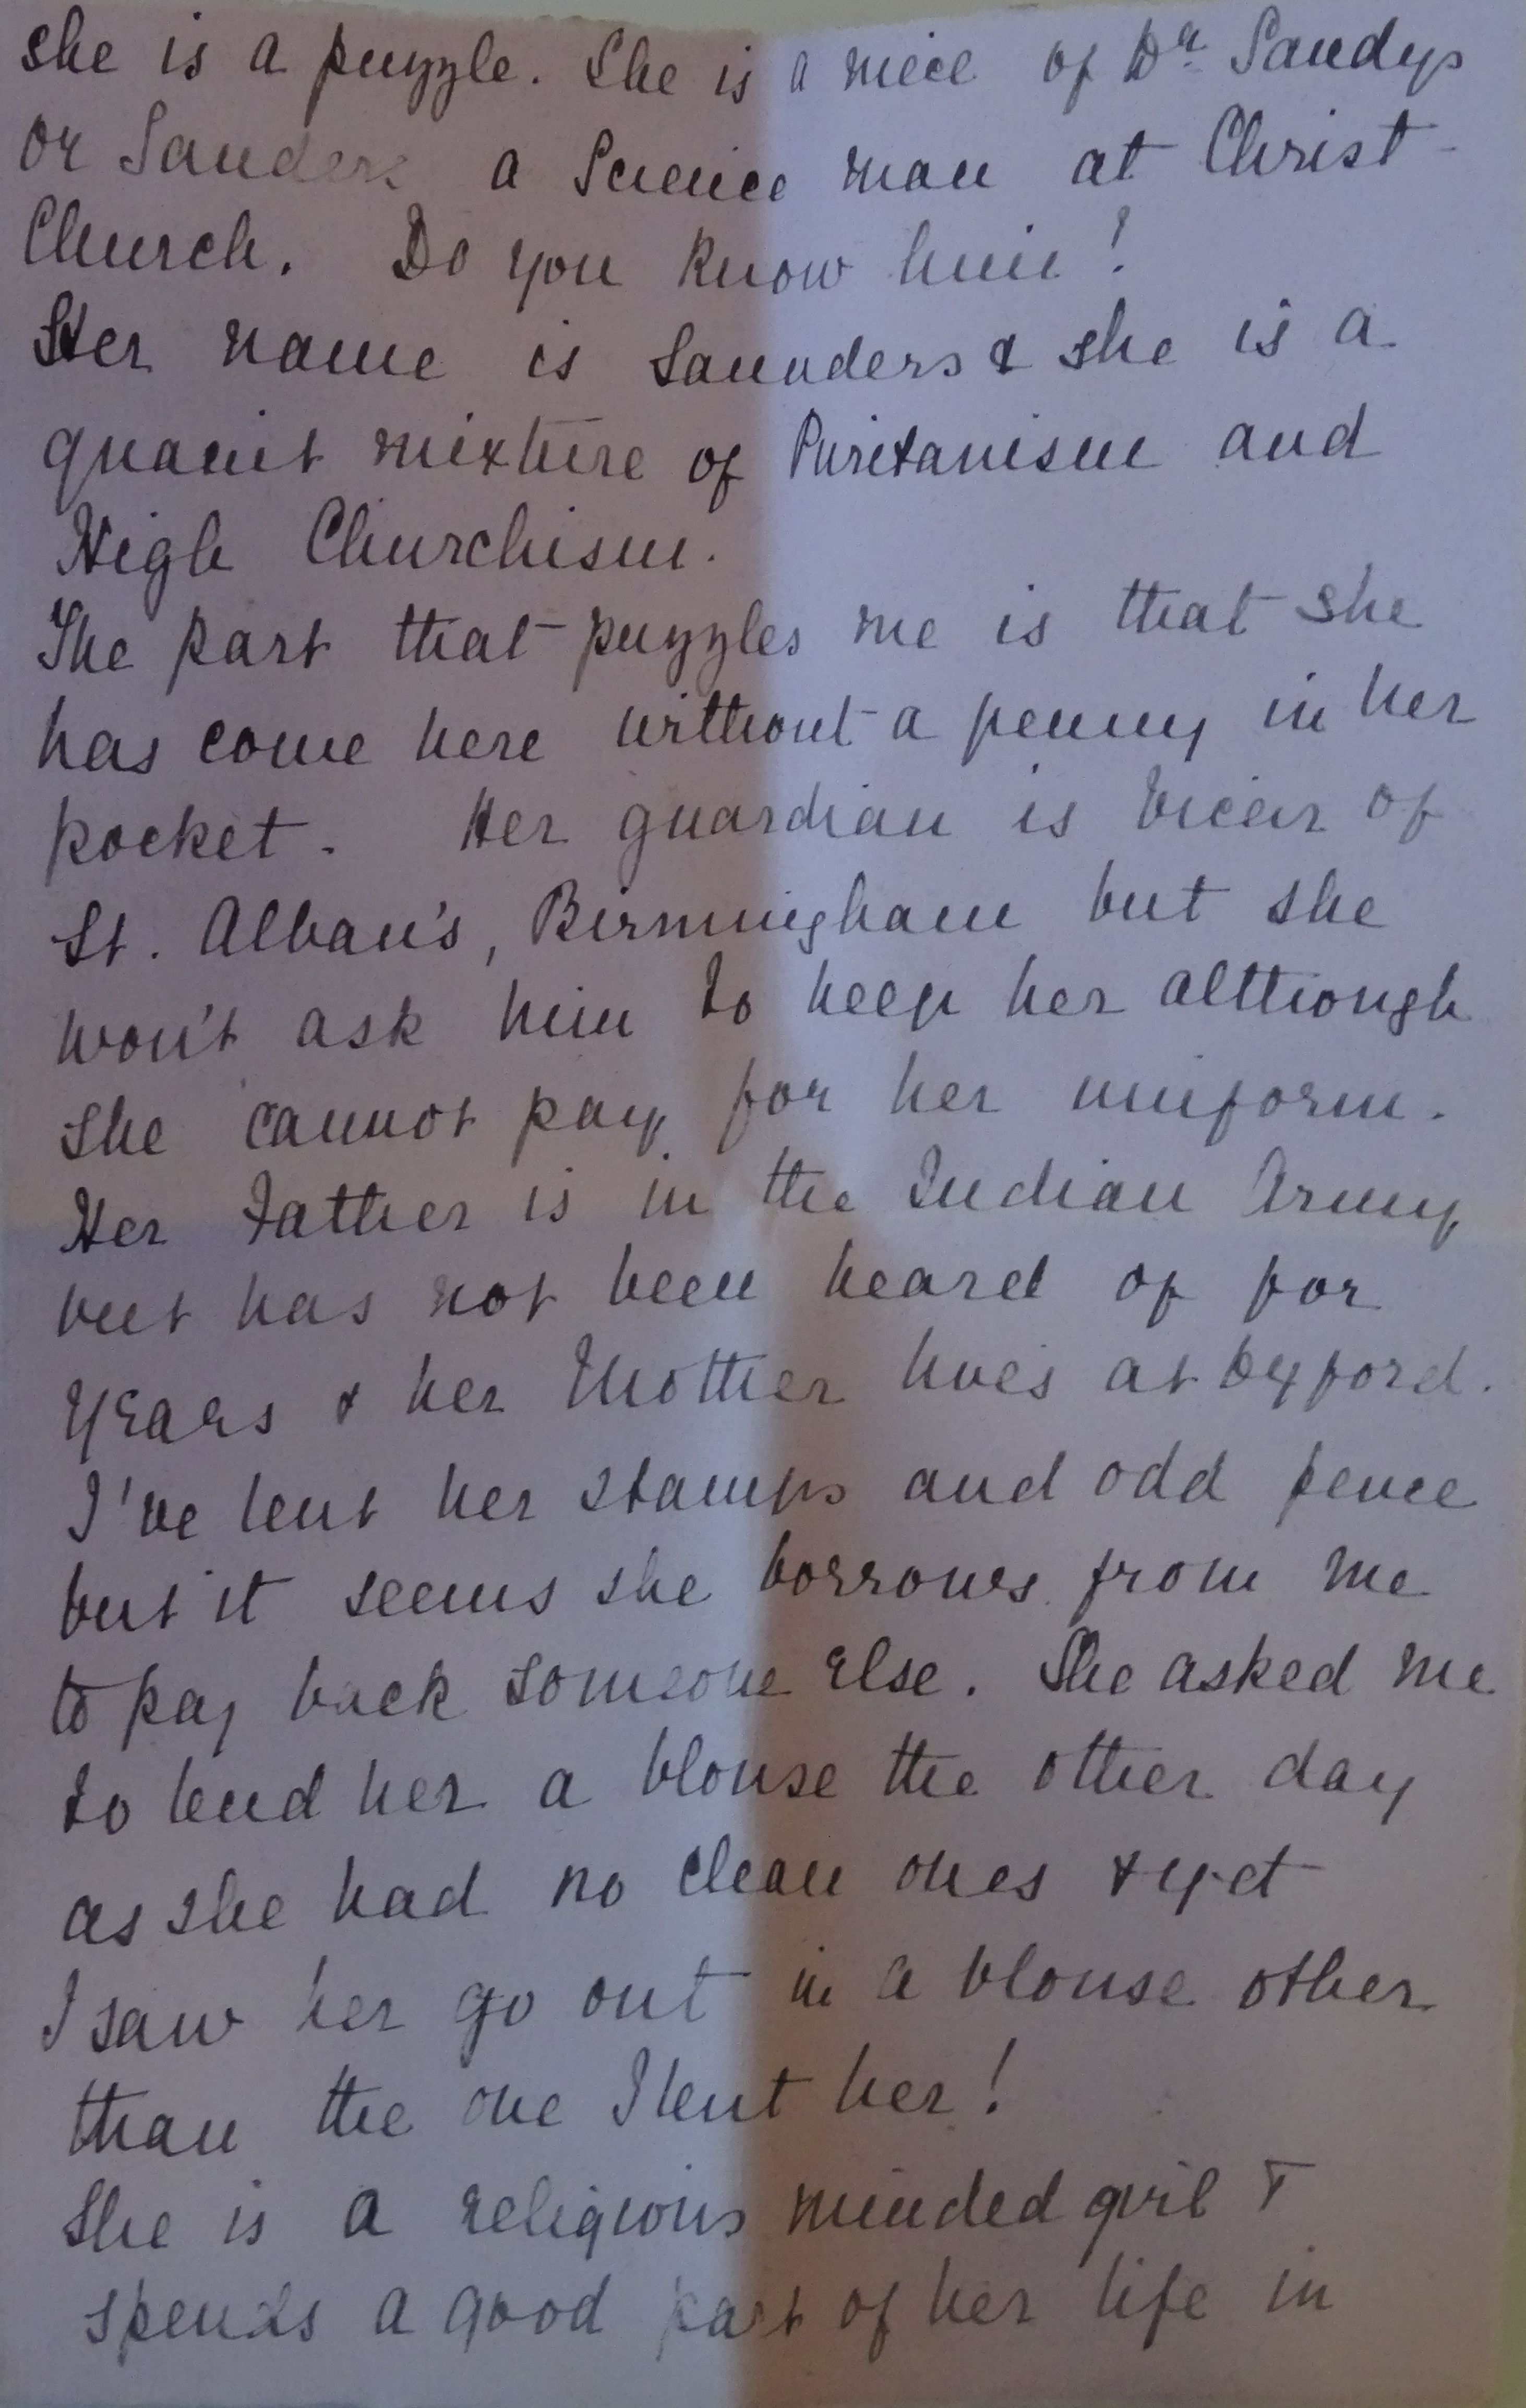 she is a puzzle. She is a niece of Dr Sandys
or Sanders a Science man at Christ-
Church. Do you know him?
Her name is Saunders & she is a
quaint mixture of Puritanism and
High Churchism.
The part that puzzles me is that she
has come here without a penny in her
pocket. Her guardian is Vicar of
St. Alban's, Birmingham but she
won't ask him to keep her although
she cannot pay for her uniform.
Her Father is in the Indian Army
but has not been heard of for
years & her Mother lives at Oxford.
I've lent her stamps and odd pence
but it seems she borrows from me
to pay back someone else. She asked me
to lend her a blouse the other day
as she had no clean ones & yet
I saw her go out in a blouse other
than the one I lent her!
She is a religious minded girl &
spends a good part of her life in